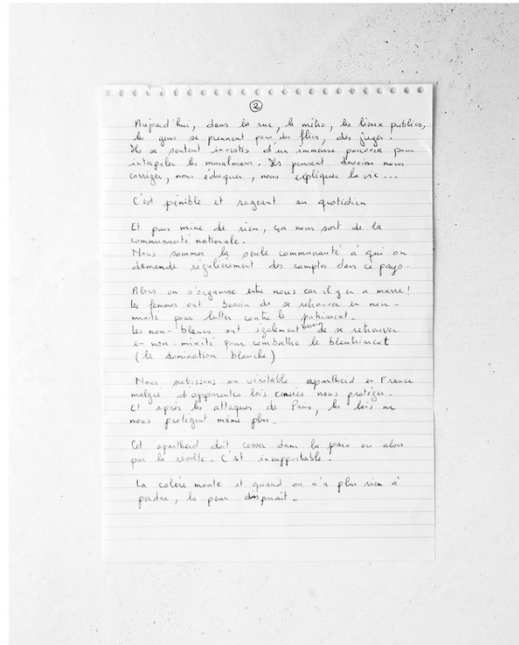 2
Aujourd'hui, dans la rue, le métro, les lieux publics,
les gens se prennent pour des flics, des juges !
Ils se sentent investis d'un immense pouvoir pour
interpeler les musulmans. Ils pensent devoir nous
corriger, nous éduquer, nous expliquer la vie ...
C'est pénible et rageant au quotidien
Et puis mine de rien, ça nous sort de la
communauté nationale.
Nous sommes la seule communauté à qui on
demande régulièrement des comptes dans ce pays.
Alors on s'organise entre nous car il y en a marre !
Les femmes ont besoin de se retrouver en non-
mixité pour lutter contre le
Les non-blancs ont également besoin de se retrouver
en non-mixité pour combattre le
(la domination blanche)
Nous subissons un véritable apartheid en France
malgré d'apparentes lois censées nous protéger.
Et après les attaques de Paris, les lois ne
nous protègent même plus.
Cet apartheid doit cesser dans la paix ou alors
par la révolte. C'est insupportable.
La colère monte et quand on n'a plus rien à
perdre, la peur disparait.